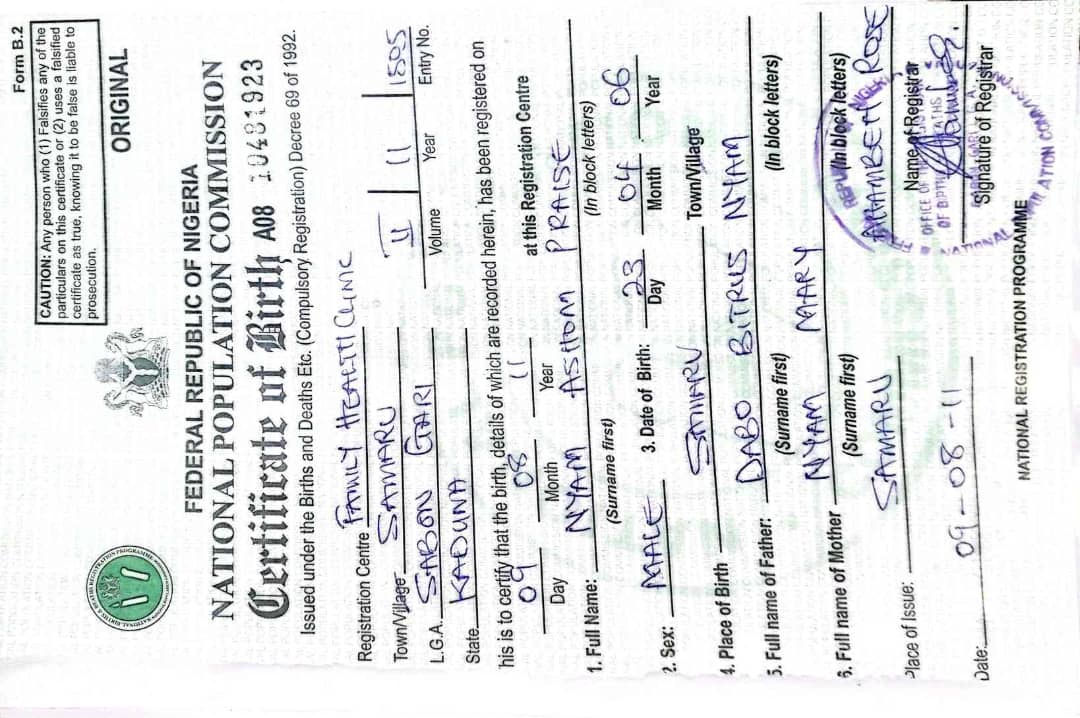 Form B.2
CAUTION: Any person who (1) Falsifies any of the
particulars on this certificate or (2) uses a falsified
certificate as true, knowing it to be false is liable to
prosecution.
ORIGINAL
FEDERAL REPUBLIC OF NIGERIA
NATIONAL POPULATION COMMISSION
Certificate of Birth A08 10481923
Issued under the Births and Deaths Etc. (Compulsory Registration) Decree 69 of 1992.
Registration Centre FAMILY HEALTH CLINIC
Town/Village SAMARU
L.G.A. SABON GARI
II 11 1505
Volume Year Entry No.
State KADUNA
his is to certify that the birth, details of which are recorded herein, has been registered on
09 08 11 at this Registration Centre
Day Month Year
1. Full Name: NYAM ASHOM PRAISE
(Surname first) (In block letters)
2. Sex: MALE 3. Date of Birth: 23 04 06
Day Month Year
4. Place of Birth SAMARU Town/Village
5. Full name of Father: DABO BITRUS NYAM
(Surname first) (In block letters)
6. Full name of Mother NYAM MARY
(Surname first) (In block letters)
Place of Issue: SAMARU ROSE
Name of Registrar
Date: 09-08-11
Signature of Registrar
NATIONAL REGISTRATION PROGRAMME